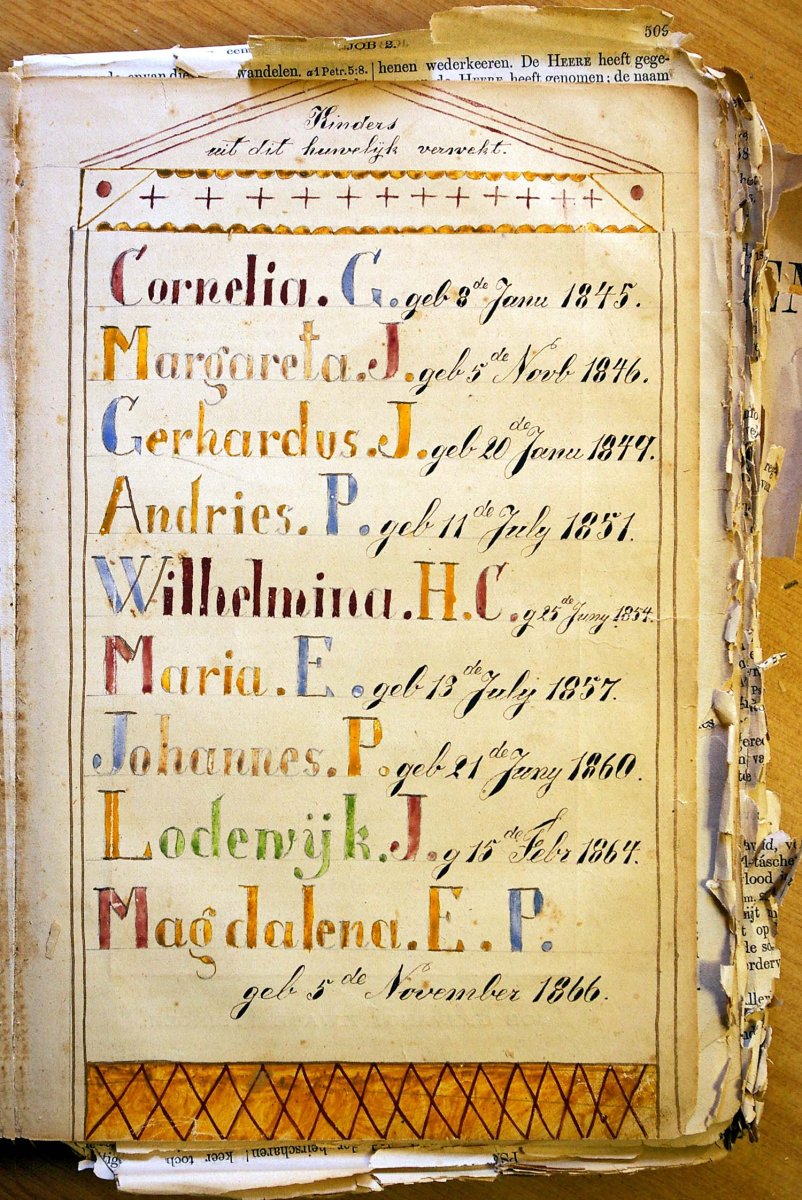 509
JOB 2.
wandelen. a 1 Petr. 5:8. henen wederkeeren. De HEERE heeft gege-
de HEERE heeft genomen; de naam
Kinders
uit dit huwelijk verwekt.
Cornelia. G. geb 8de Janu 1845.
Margareta. J. geb 5de Novb 1846.
Gerhardus. J. geb 20de Janu 1849.
Andries. P. geb 11de July 1851.
Wilhelmina. H. C. g 25de Juny 1854.
Maria. E. geb 13de July 1857.
Johannes. P. geb 21de Juny 1860.
Lodewijk. J. g 15de Febr 1864.
Magdalena. E. P.
geb 5de November 1866.
heirscharen! keer toch